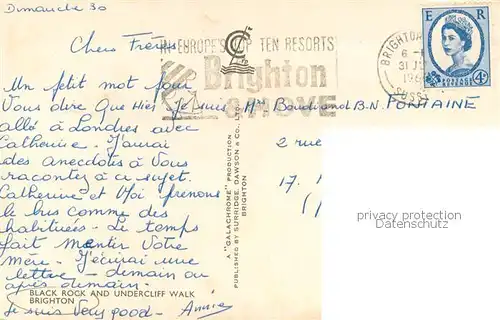 Dimanche 30
Chers Frères
Un petit mot pour
Vous dire que Hier je suis
allé à Londres avec
Catherine. J'aurai
des anecdotes à Vous
racontez à ce sujet.
Catherine et Moi prenons
le bus comme des
habituées. Le temps
fait mentir Votre
mère. J'écrirai une
lettre demain ou
après demain.
je suis Very good - Annie
BLACK ROCK AND UNDERCLIFF WALK
BRIGHTON
A "GALACHROME" PRODUCTION
PUBLISHED BY SURRIDGE, DAWSON & CO.
BRIGHTON
IN EUROPE'S TOP TEN RESORTS
Brighton
& HOVE
BRIGHTON
6
31
196
SUSS
E R
POSTAGE REVENUE
4D
et B.N. FONTAINE
2 rue
17.
privacy protection
Datenschutz